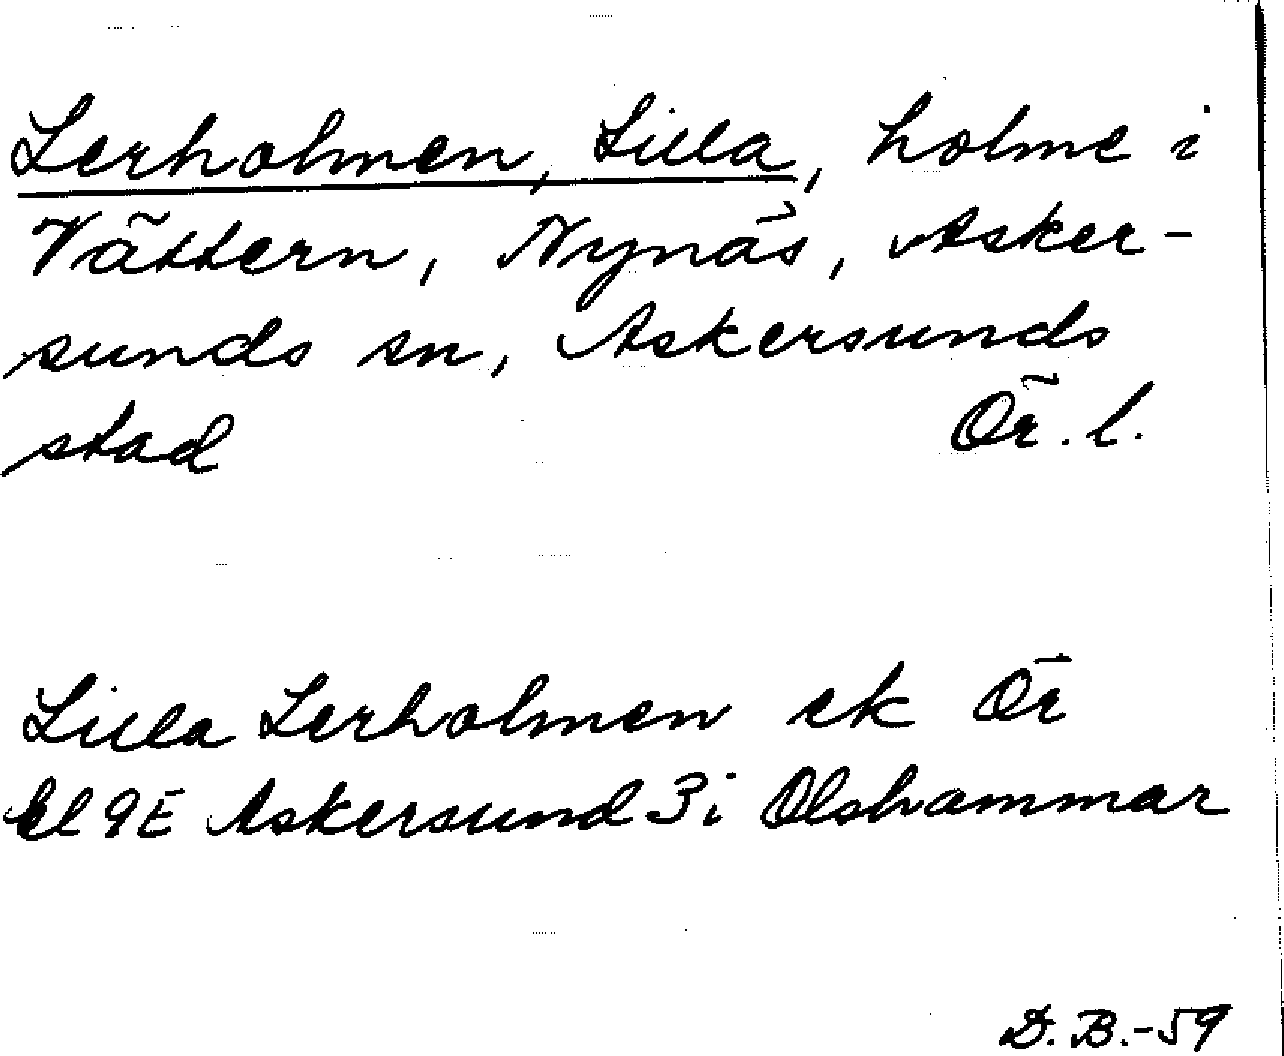 Lerholmen, Lilla, holme i
Vättern, Nynäs, Asker-
sunds sn, Askersunds
stad Ör. l.
Lilla Lerholmen ek Ör
9E Askersund 3i Olshammar
D.B.-59